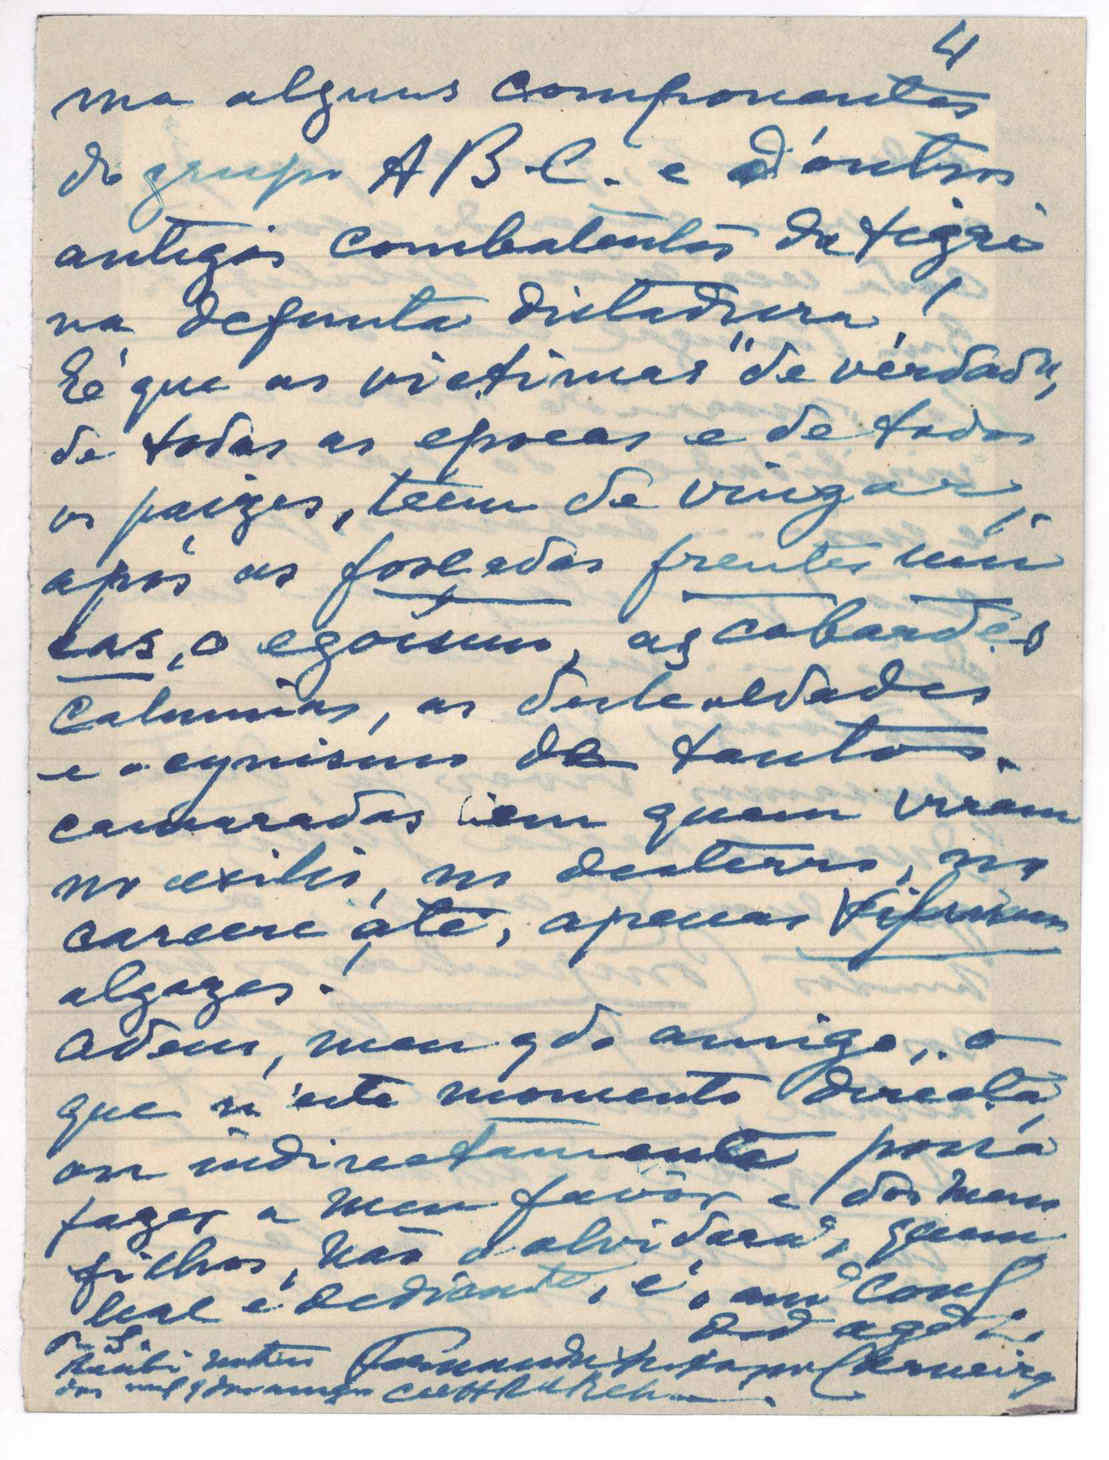 4
ma alguns componentes
do grupo A B. C. e d'outros
antigos combatentes da tigri
na defunta dictadura!
É que as victimas "de verdade",
de todas as epocas e de todos
os paizes, teem de vingar,
após as forcadas frentes uni
cas, o egoismo, as cobardes
calumnias, as deslealdades
e o cynismo de tantos
camaradas em quem viram
no exilio, no desterro, no
carcere até, apenas
algozes!
Adeus, meu qdo amigo, o
que n'este momento directa
ou indirectamente possa
fazer a meu favor e dos meus
filhos, não o olvidará, quem
leal e dedicado, é, am.º
P. S.
Recebi
dos